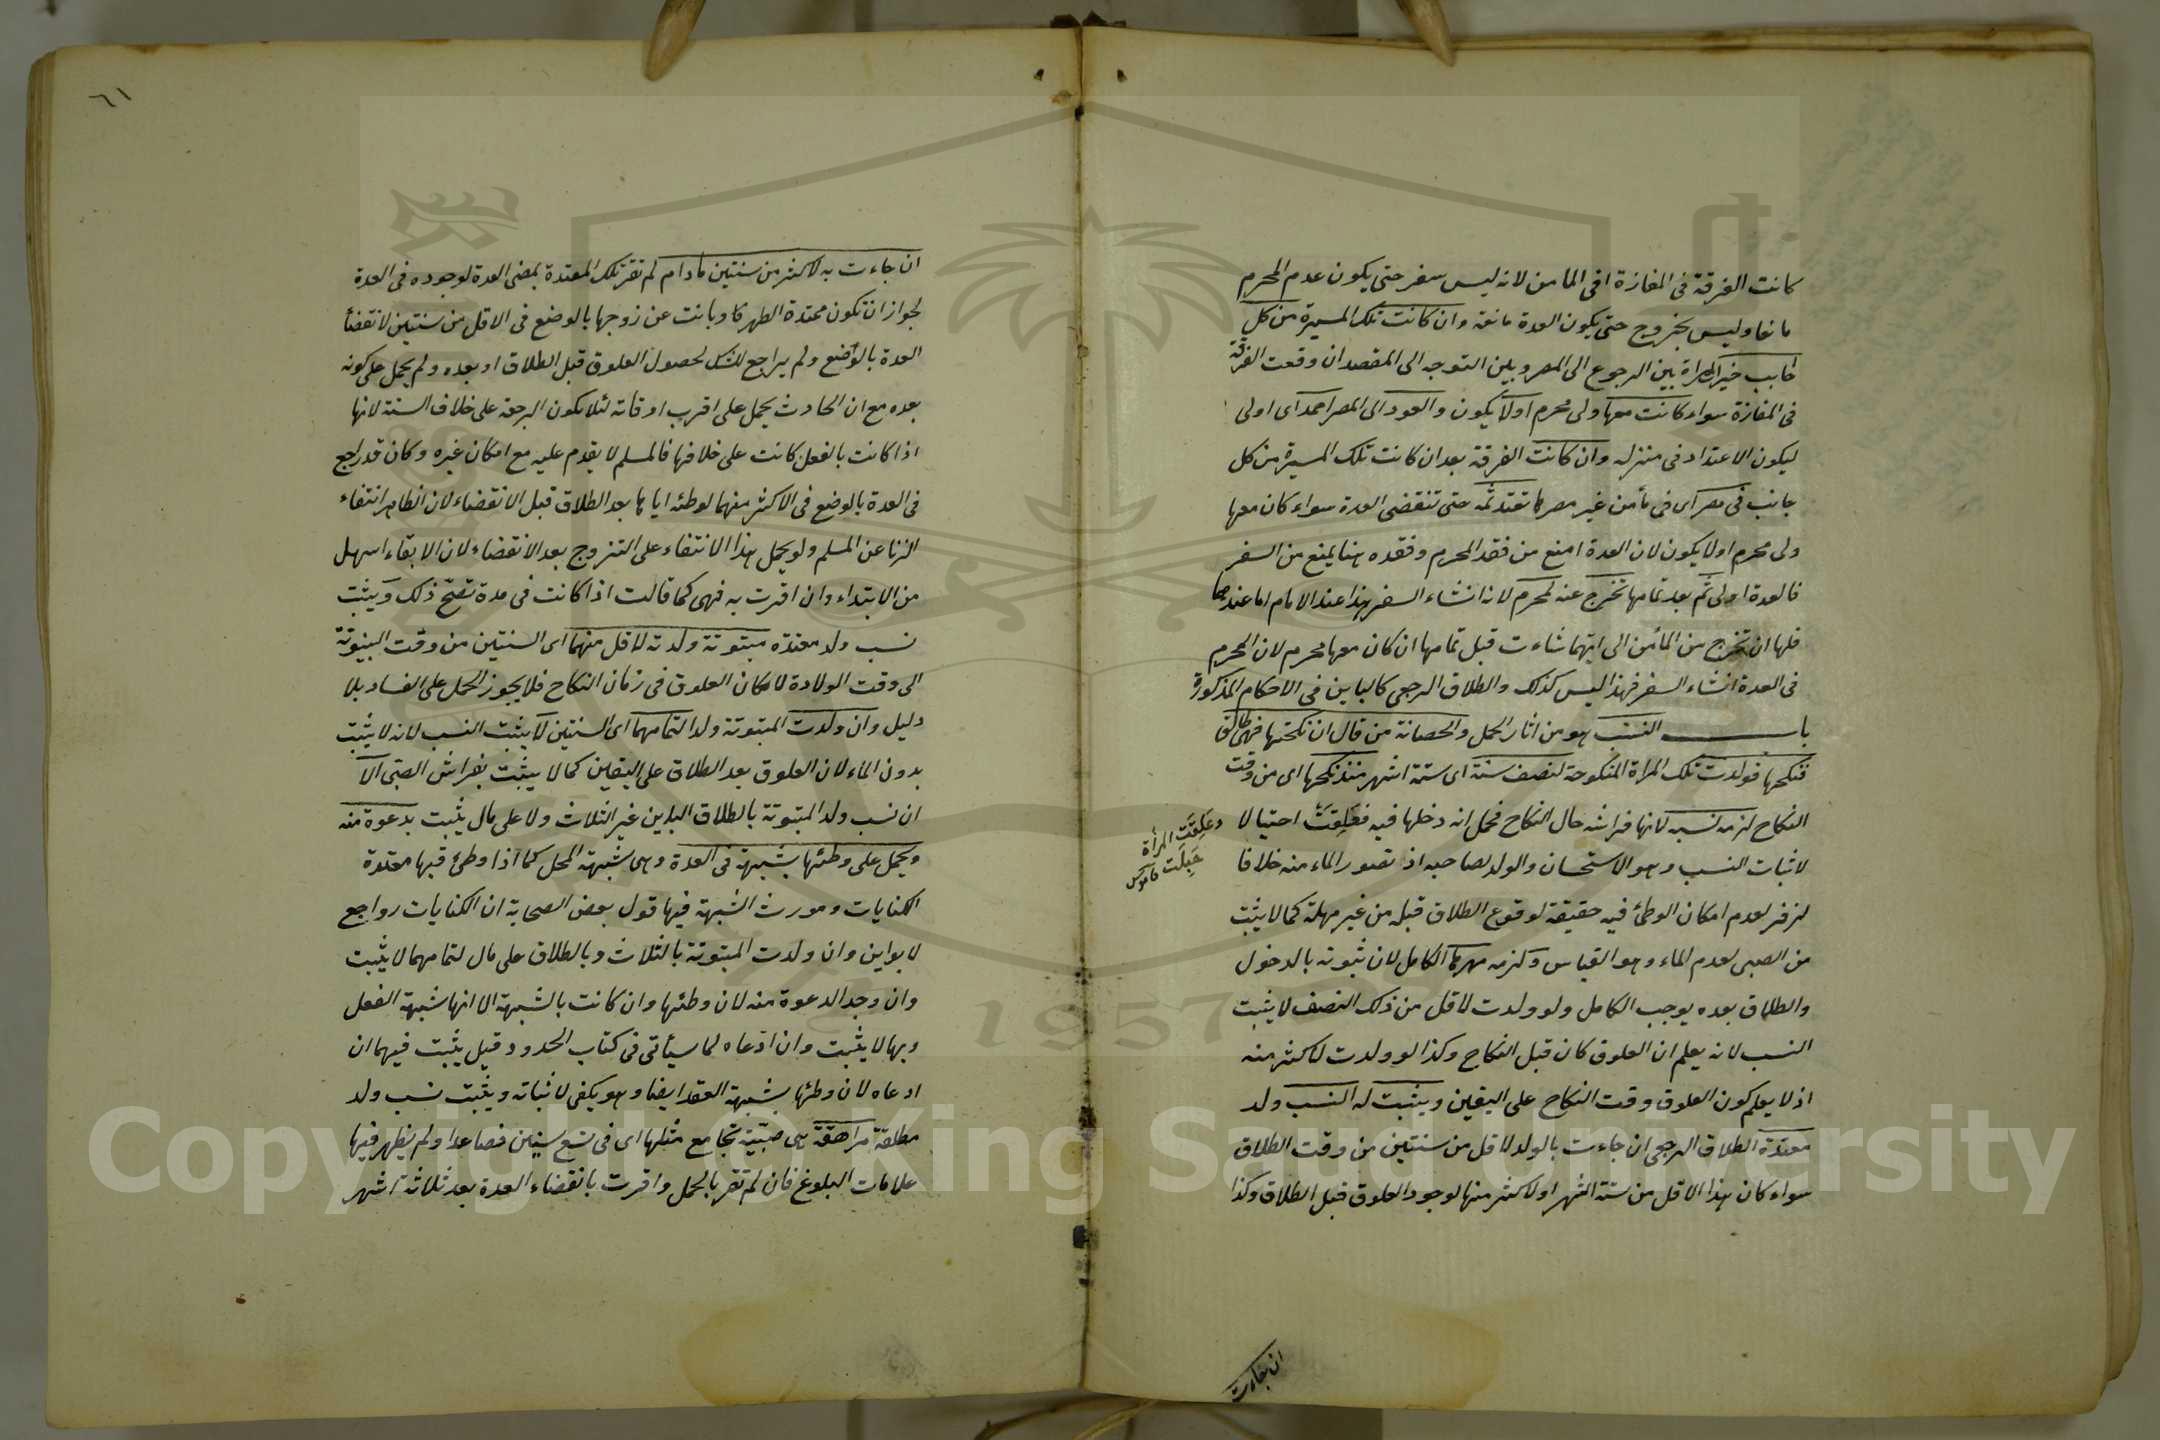 كانت الفرقة فى المفازة او فى المامن لانه ليس سفر حتى يكون عدم المحرم
مانعا وليس بخروج حتى يكون العدة مانعة وان كانت تلك المسيرة من كل
جانب خير المراة بين الرجوع الى المصر وبين التوجه الى المقصد ان وقعت الفرقة
فى المفازة سواء كانت معها ولى محرم اولا يكون والعود الى المصر احمد اى اولى
ليكون الاعتداد فى منزله وان كانت الفرقة بعد ان كانت تلك المسيرة من كل
جانب فى مصر اى فى مأمن غير مصرها تعتد ثمه حتى تنقضى العدة سواء كان معها
ولى محرم اولا يكون لان العدة امنع من فقد المحرم وفقده هنا يمنع من السفر
فالعدة اولى ثم بعد تمامها تخرج عنه لمحرم لانه انشاء السفر هذا عند الامام اما عندهما
فلها ان تخرج من المأمن الى ايتهما شاءت قبل تمامها ان كان معها محرم لان المحرم
فى العدة انشاء السفر فهذا ليس كذلك والطلاق الرجعى كالباين فى الاحكام المذكورة
باب النسب هو من اثار الحمل والحصانة من قال ان نكحتها فهى طالق
فنكحها فولدت تلك المراة المنكوحة لنصف سنة اى ستة اشهر منذ نكحها اى من وقت
النكاح لزمه نسبه لانها فراشه حال النكاح فحمل انه دخلها فيه فعلقت احتيالا
وعلقت المرأة
حبلت قاموس
لاثبات النسب وهو الاستحسان والولد لصاحبه اذ تصور الماء منه خلافا
لزفر لعدم امكان الوطئ فيه حقيقة لوقوع الطلاق قبله من غير مهلة كما لا يثبت
من الصبى لعدم الماء وهو القياس ولزمه مهرها الكامل لان ثبوته بالدخول
والطلاق بعده يوجب الكامل ولو ولدت لاقل من ذلك النصف لا يثبت
النسب لانه يعلم ان العلوق كان قبل النكاح وكذا لو ولدت لاكثر منه
اذ لا يعلم كون العلوق وقت النكاح على اليقين ويثبت له النسب ولد
معتدة الطلاق الرجعى ان جاءت بالولد لاقل من سنتين من وقت الطلاق
سواء كان هذا الاقل من ستة اشهر او لاكثر منها لوجود العلوق قبل الطلاق وكذا
ان جاءت
٦١
ان جاءت به لاكثر من سنتين مادام لم تقر تلك المعتدة بمضى العدة لوجوده فى العدة
لجواز ان تكون ممتدة الطهر كا وبانت عن زوجها بالوضع فى الاقل من سنتين لانقضأ
العدة بالوضع ولم يراجع للشك لحصول العلوق قبل الطلاق او بعده ولم يحمل على كونه
بعده مع ان الحادث يحمل على اقرب اوقاته لئلا يكون الرجعة على خلاف السنة لانها
اذا كانت بالفعل كانت على خلافها فالمسلم لا يقدم عليه مع امكان غيره وكان قد راجع
فى العدة بالوضع فى الاكثر منهما لوطئه اياها بعد الطلاق قبل الانقضاء لان الظاهر انتفاء
الزنا عن المسلم ولو يحمل هذا الانتفاء على التزوج بعد الانقضاء لان الابقاء اسهل
من الابتداء وان اقرت به فهى كما قالت اذا كانت فى مدة تصح ذلك ويثبت
نسب ولد معتدة مبتوتة ولدته لاقل منهما اى السنتين من وقت البينوتة
الى وقت الولادة لامكان العلوق فى زمان النكاح فلا يجوز الحمل على الفساد بلا
دليل وان ولدت المبتوتة ولدا لتمامهما اى السنتين لا يثبت النسب لانه لا يثبت
بدون الماء لان العلوق بعد الطلاق على اليقين كما لا يثبت بفراش الصبى الا
ان نسب ولد المبتوتة بالطلاق الباين غير الثلاث ولا على مال يثبت بدعوة منه
ويحمل على وطئها بشبهة فى العدة وهى شبهة المحل كما اذا وطئ فيها معتدة
الكنايات ومورث الشبهة فيها قول بعض الصحابة ان الكنايات رواجع
لا بواين وان ولدت المبتوتة بالثلاث وبالطلاق على مال لتمامهما لا يثبت
وان وجد الدعوة منه لان وطئها وان كانت بالشبهة الا انها شبهة الفعل
وبها لا يثبت وان ادعاه لما سيأتى فى كتاب الحدود قيل يثبت فيهما ان
ادعاه لان وطئها بشبهة العقد ايضا وهو يكفى لاثباته ويثبت نسب ولد
مطلقة مراهقة هى صبية تجامع مثلها اى فى تسع سنين فصاعدا ولم يظهر فيها
علامات البلوغ فان لم تقر بالحمل واقرت بانقضاء العدة بعد ثلاثة اشهر
Copyright © King Saud University
1957